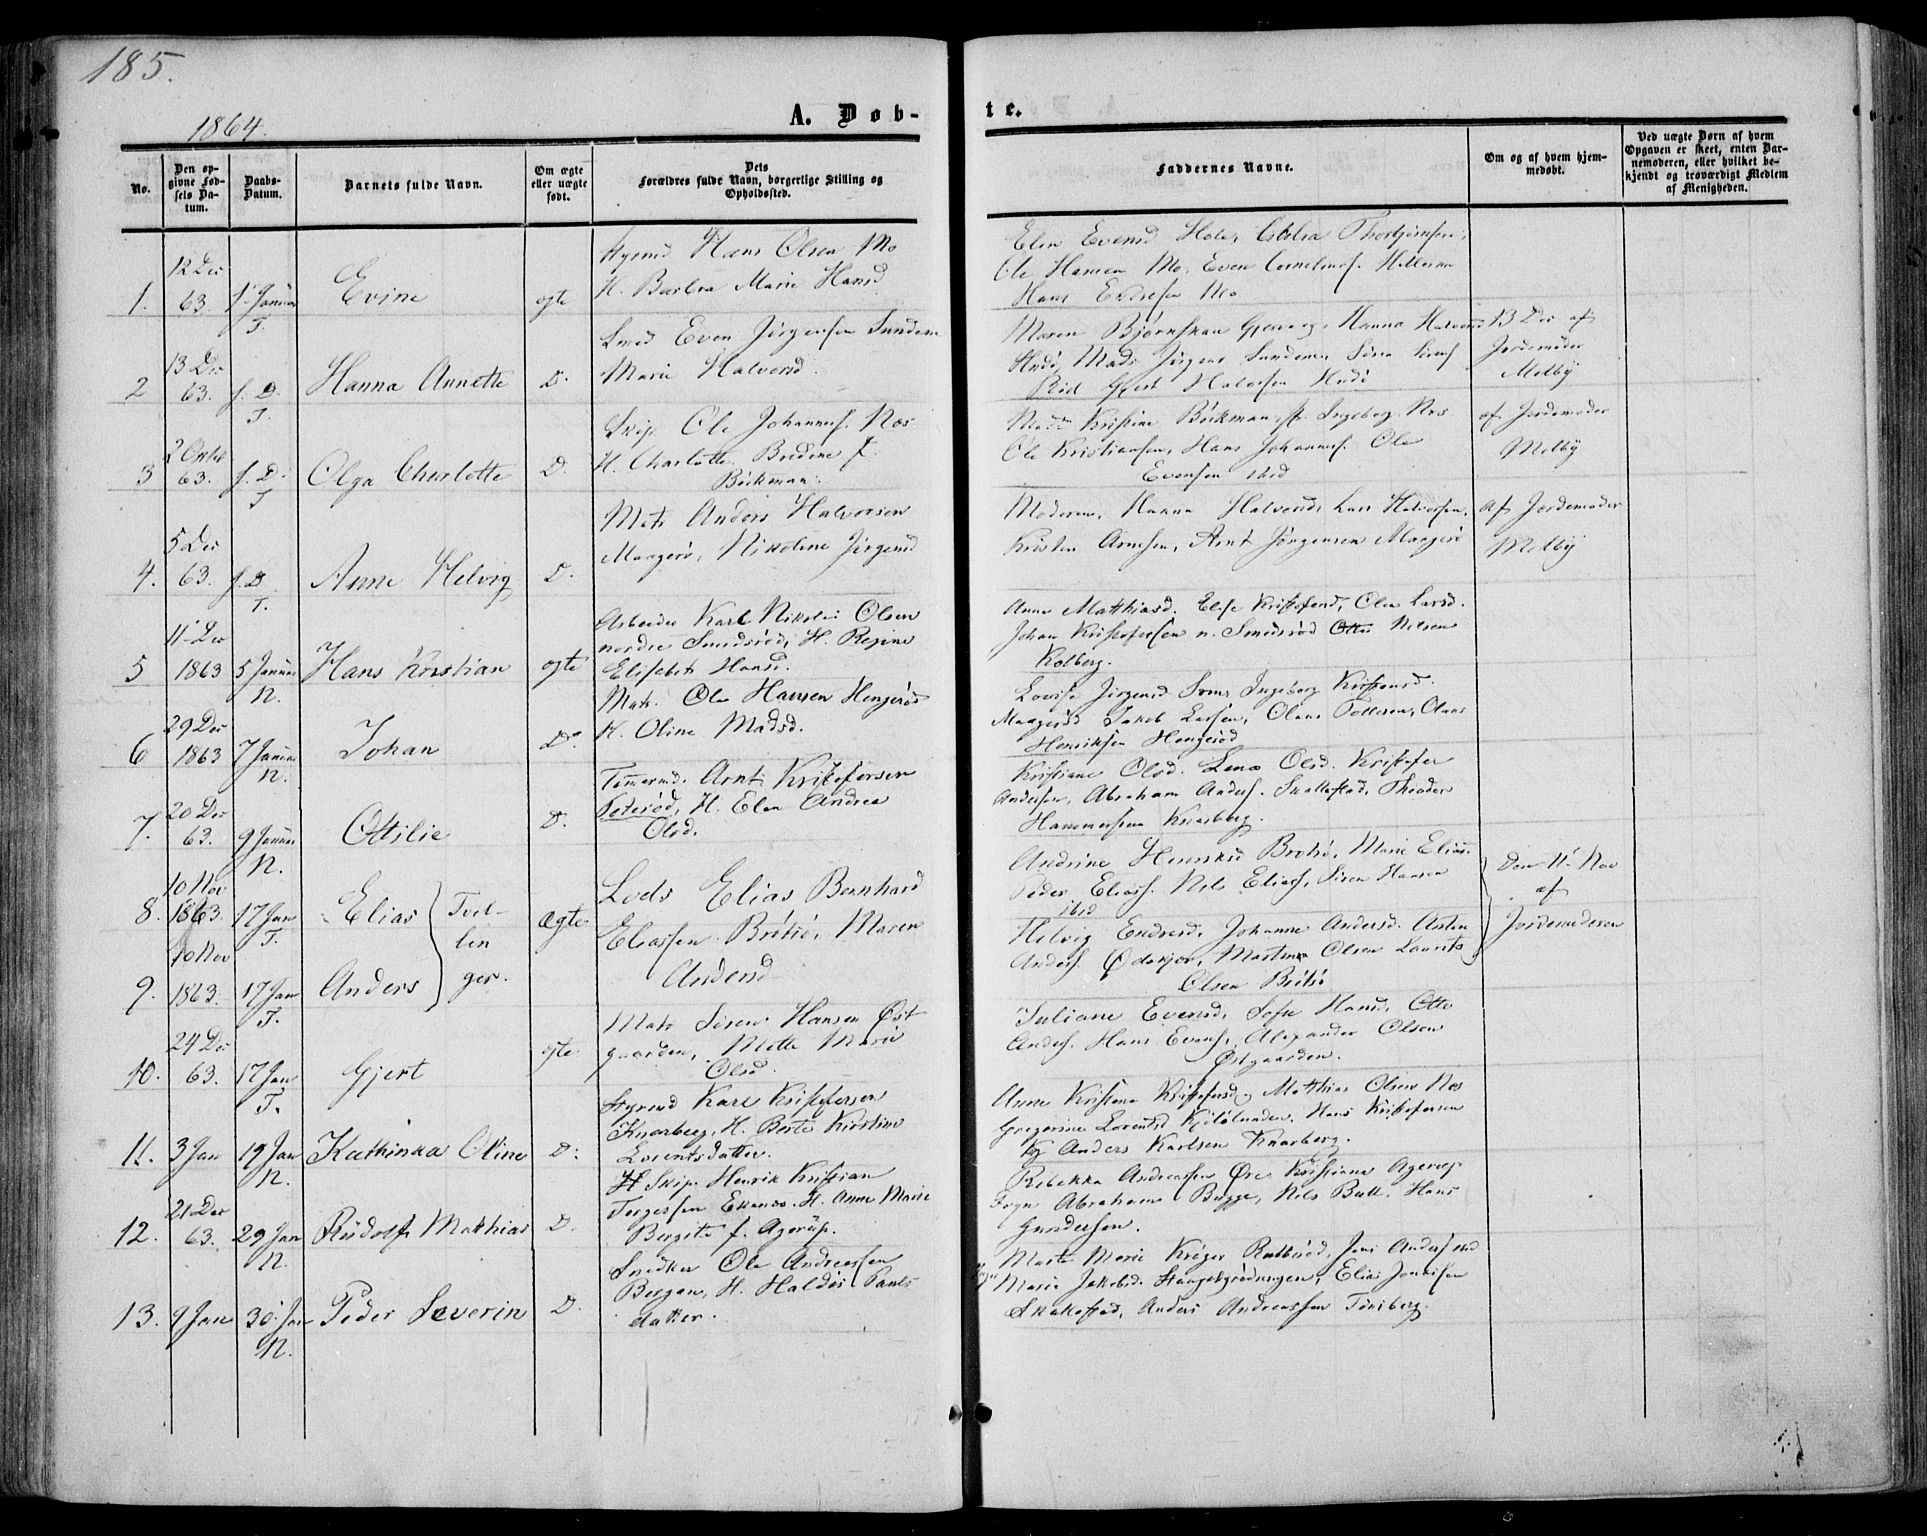 185.
1864.
A. Døb-
te.
No.
Den op-
givne Fød-
sels Da-
tum.
Daabs-
Datum.
Barnets fulde Navn.
Om ægte
eller uægte
født.
Dets
Forældres fulde Navn, borgerlige Stilling og
Opholdssted.
Faddernes Navne.
Om og af hvem hjem-
medøbt.
Ved uægte Børn af hvem
Opgaven er skeet, enten Bar-
nemoderen, eller hvilket be-
kjendt og troværdigt Medlem
af Menigheden.
1. 12 Des 63. 1 Januar T. Evine ogte
Styrmd Hans Olsen Mo
H. Barbra Marie Hansd
Elen Evensd Hole,
Ole Hansen Mo, Even Cornelius.
Hans Mo
2 13 Des 63. f. D. T. Hanna Annette D.
Smed Even Jörgensen Sundene
Marie Halvorsd.
Maren Björnskau Gjervog, Hanna Halvorsd
Hudö, Mads Jörgens Sundene, Sören
Gjert Halvorsen Hudö
13 Des af
Jordemoder
Melby
3 2 Oktb 63. f. D. T Olga Charlotte D.
Skip. Ole Johannes. Næs
H. Charlotte Bredine f.
Böckman.
Kristine Böckman, Ingeborg Næs
Ole Kristiansen, Hans Johannes. Ole
Evensen ibid
af Jordemoder
Melby
4. 5 Des 63. f. D. T. Anne Helvig D.
Mats Anders Halvorsen
Maagerö, Nikoline Jörgensd
Moderen, Hanna Halvorsd, Lars Halvorsen,
Kristen Arnesen, Arnt Jörgensen Maagerö
af Jordemoder
Melby
5 11 Des 1863 5 Januar N. Hans Kristian ogte
Arbeider Karl Nikolai Olsen
nordre Smidsröd, H. Regine
Elisabet Hansd.
Anne Matthiasd. Elise Kristofersd, Ole Larsd.
Johan Kristofersen n. Smidsröd Otto Nilsen
Kolberg.
6 29 Des 1863 7 Januar N. Johan Do
Mats. Ole Hansen Hengsröd
H. Oline Madsd.
Lovise Jörgensd Ingeborg Kristensd.
Jakob Larsen, Olaus Pettersen, Olaus
Henriksen Hengsröd
7. 20 Des 63. 9 Januar N. Ottilie D.
Tömmermd. Arnt Kristofersen
H. Elen Andrea
Olsd.
Kristiane Olsd. Lena Olsd. Kristofer
Andersen, Abraham Anders. Skallestad, Theodor
Hammersen Knarberg.
8. 10 Nov 1863. 17 Jan T. Elias Tvil- Ægte
Lods Elias Bernhard
Eliassen Brötsö, Maren
Andersd
Andrine Henriksd Brötsö, Marie Elias.
Peder Elias. Nils Elias, Sören Hansen
ibid
Den 11 Nov
af
Jordemoderen
lin
9. 10 Nov 1863. 17 Jan T. Anders ger.
Helvig Endresd, Johanne Andersd. Austen
Anders. Ödekjær, Martin Olsen Laurits
Olsen Brötsö
10. 24 Des 63. 17 Jan T. Gjert ogte
Mats Sören Hansen Øst
gaarden, Mette Marie
Olsd.
Juliane Evensd, Sofie Hansd, Otto
Anders. Hans Evens, Alexander Olsen
Østgaarden.
11. 3 Jan 19 Jan N. Kathinka Oline D.
Styrmd Karl Kristofersen
Knarberg, H. Berte Kirstine
Lorentsdatter.
Anne Kristine Kristofersd, Matthias Olsen Næs
Gregorine Lorentsd Hans Kristofersen
og Anders Karlsen Knarberg.
12. 21 Des 63. 29 Jan N. Rudolf Matthias D.
H Skip. Henrik Kristian
Torgersen Ekenæs. H. Anne Marie
Bergite f. Agerup.
Rebekka Andreassen Öre Kristiane Agerup
Abraham Bugge, Nils Bull, Hans
Gundersen.
13. 9 Jan 30 Jan N. Peder Severin D.
Snedker Ole Andreassen
Bergan, H. Haldis Pauls
datter.
Marte Marie Kröger Jens Anders
Marie Jakobsd. Elias
Skakestad, Anders Andreassen Tönsberg.